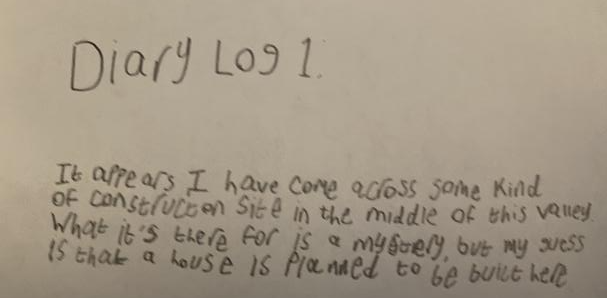 Diary Log 1.
It appears I have come across some kind
of construction site in the middle of this valley.
What it's there for is a mystery, but my guess
is that a house is planned to be built here